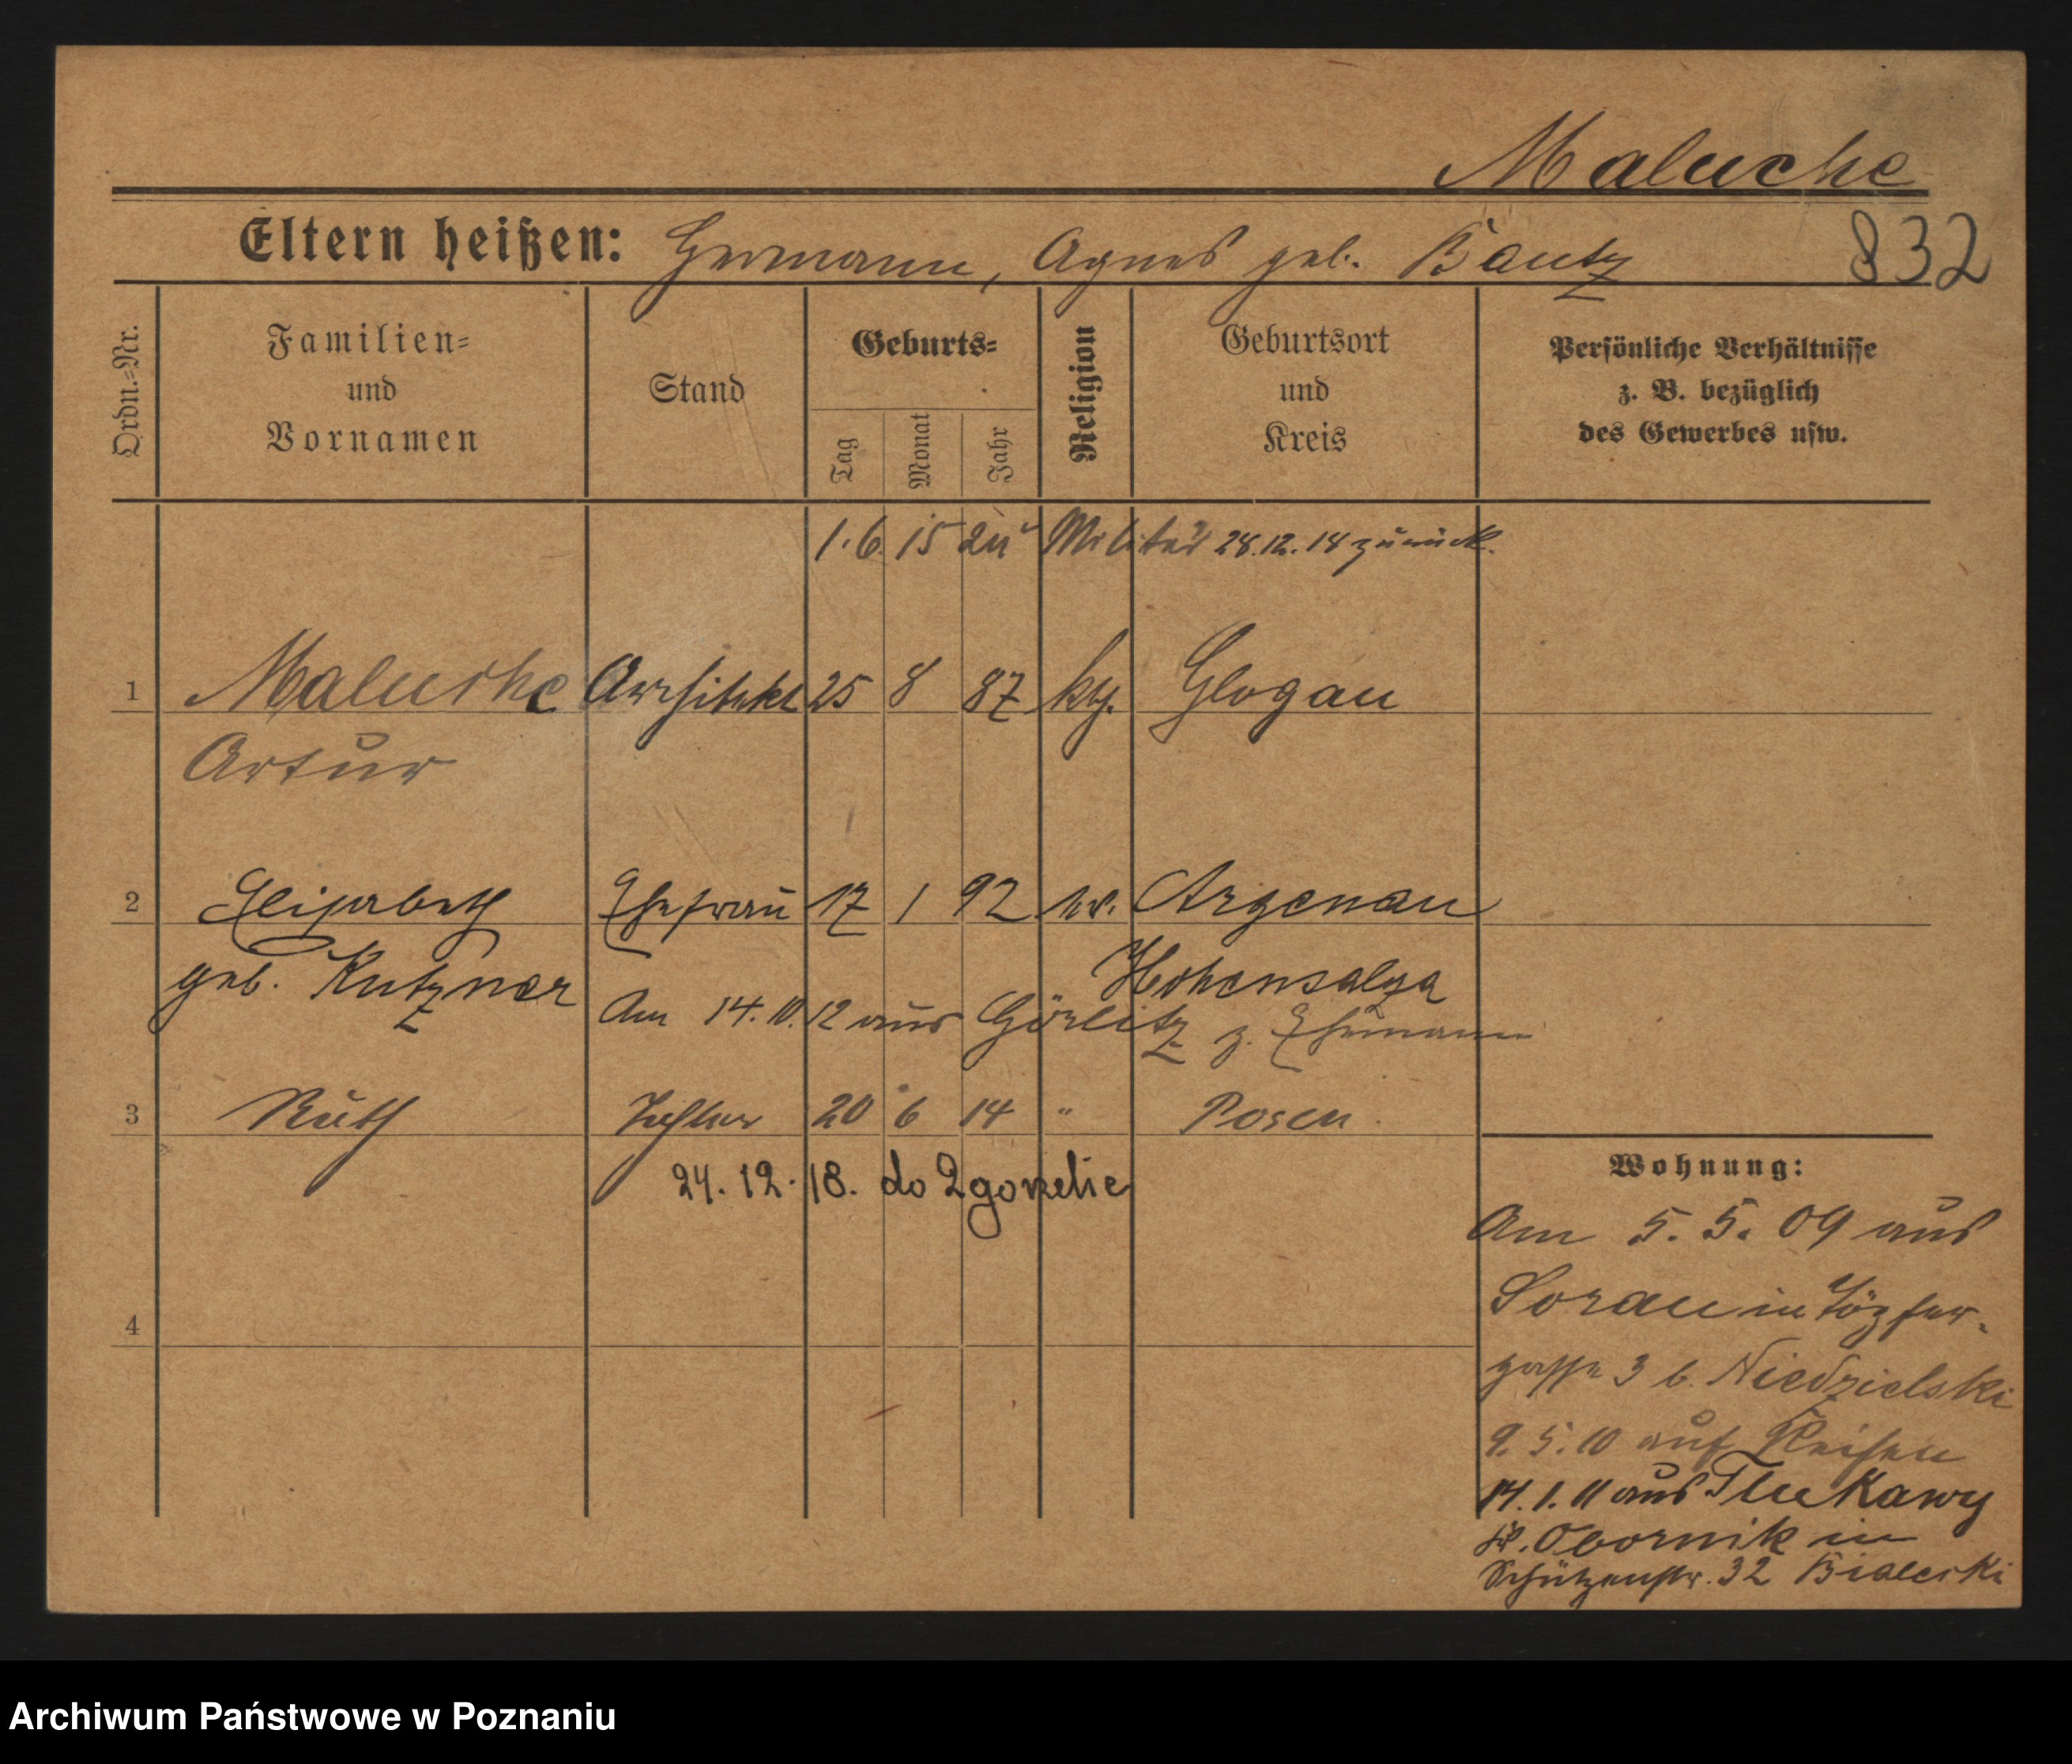 Maluche
Eltern heißen: Hermann, Agnes geb. Bautz
832
Ordn.=Nr.
Familien=
und
Vornamen
Stand
Geburts=
Tag
Monat
Jahr
Religion
Geburtsort
und
Kreis
Persönliche Verhältnisse
z. B. bezüglich
des Gewerbes usw.
1.6. 15 zu Militär 28.12.18 zurück.
1 Maluche Architekt 25 8 87 Glogau
Artur
2 Elisabeth Ehefrau 17 1 92 Argenau
geb. Kutzner Hohensalza
Am 14.10.12 aus Görlitz z. Ehemann
3 Ruth Tochter 20 6 14 " Posen
24.12.18. do Zgorzelic
4
Wohnung:
Am 5.5.09 aus
Sorau in Töpfer-
gasse 3 b. Niedzielski
9.5.10 auf Reisen
14.1.11 aus Tlukawy
Kr. Obornik in
Schützenstr. 32 Bialecki
Archiwum Państwowe w Poznaniu